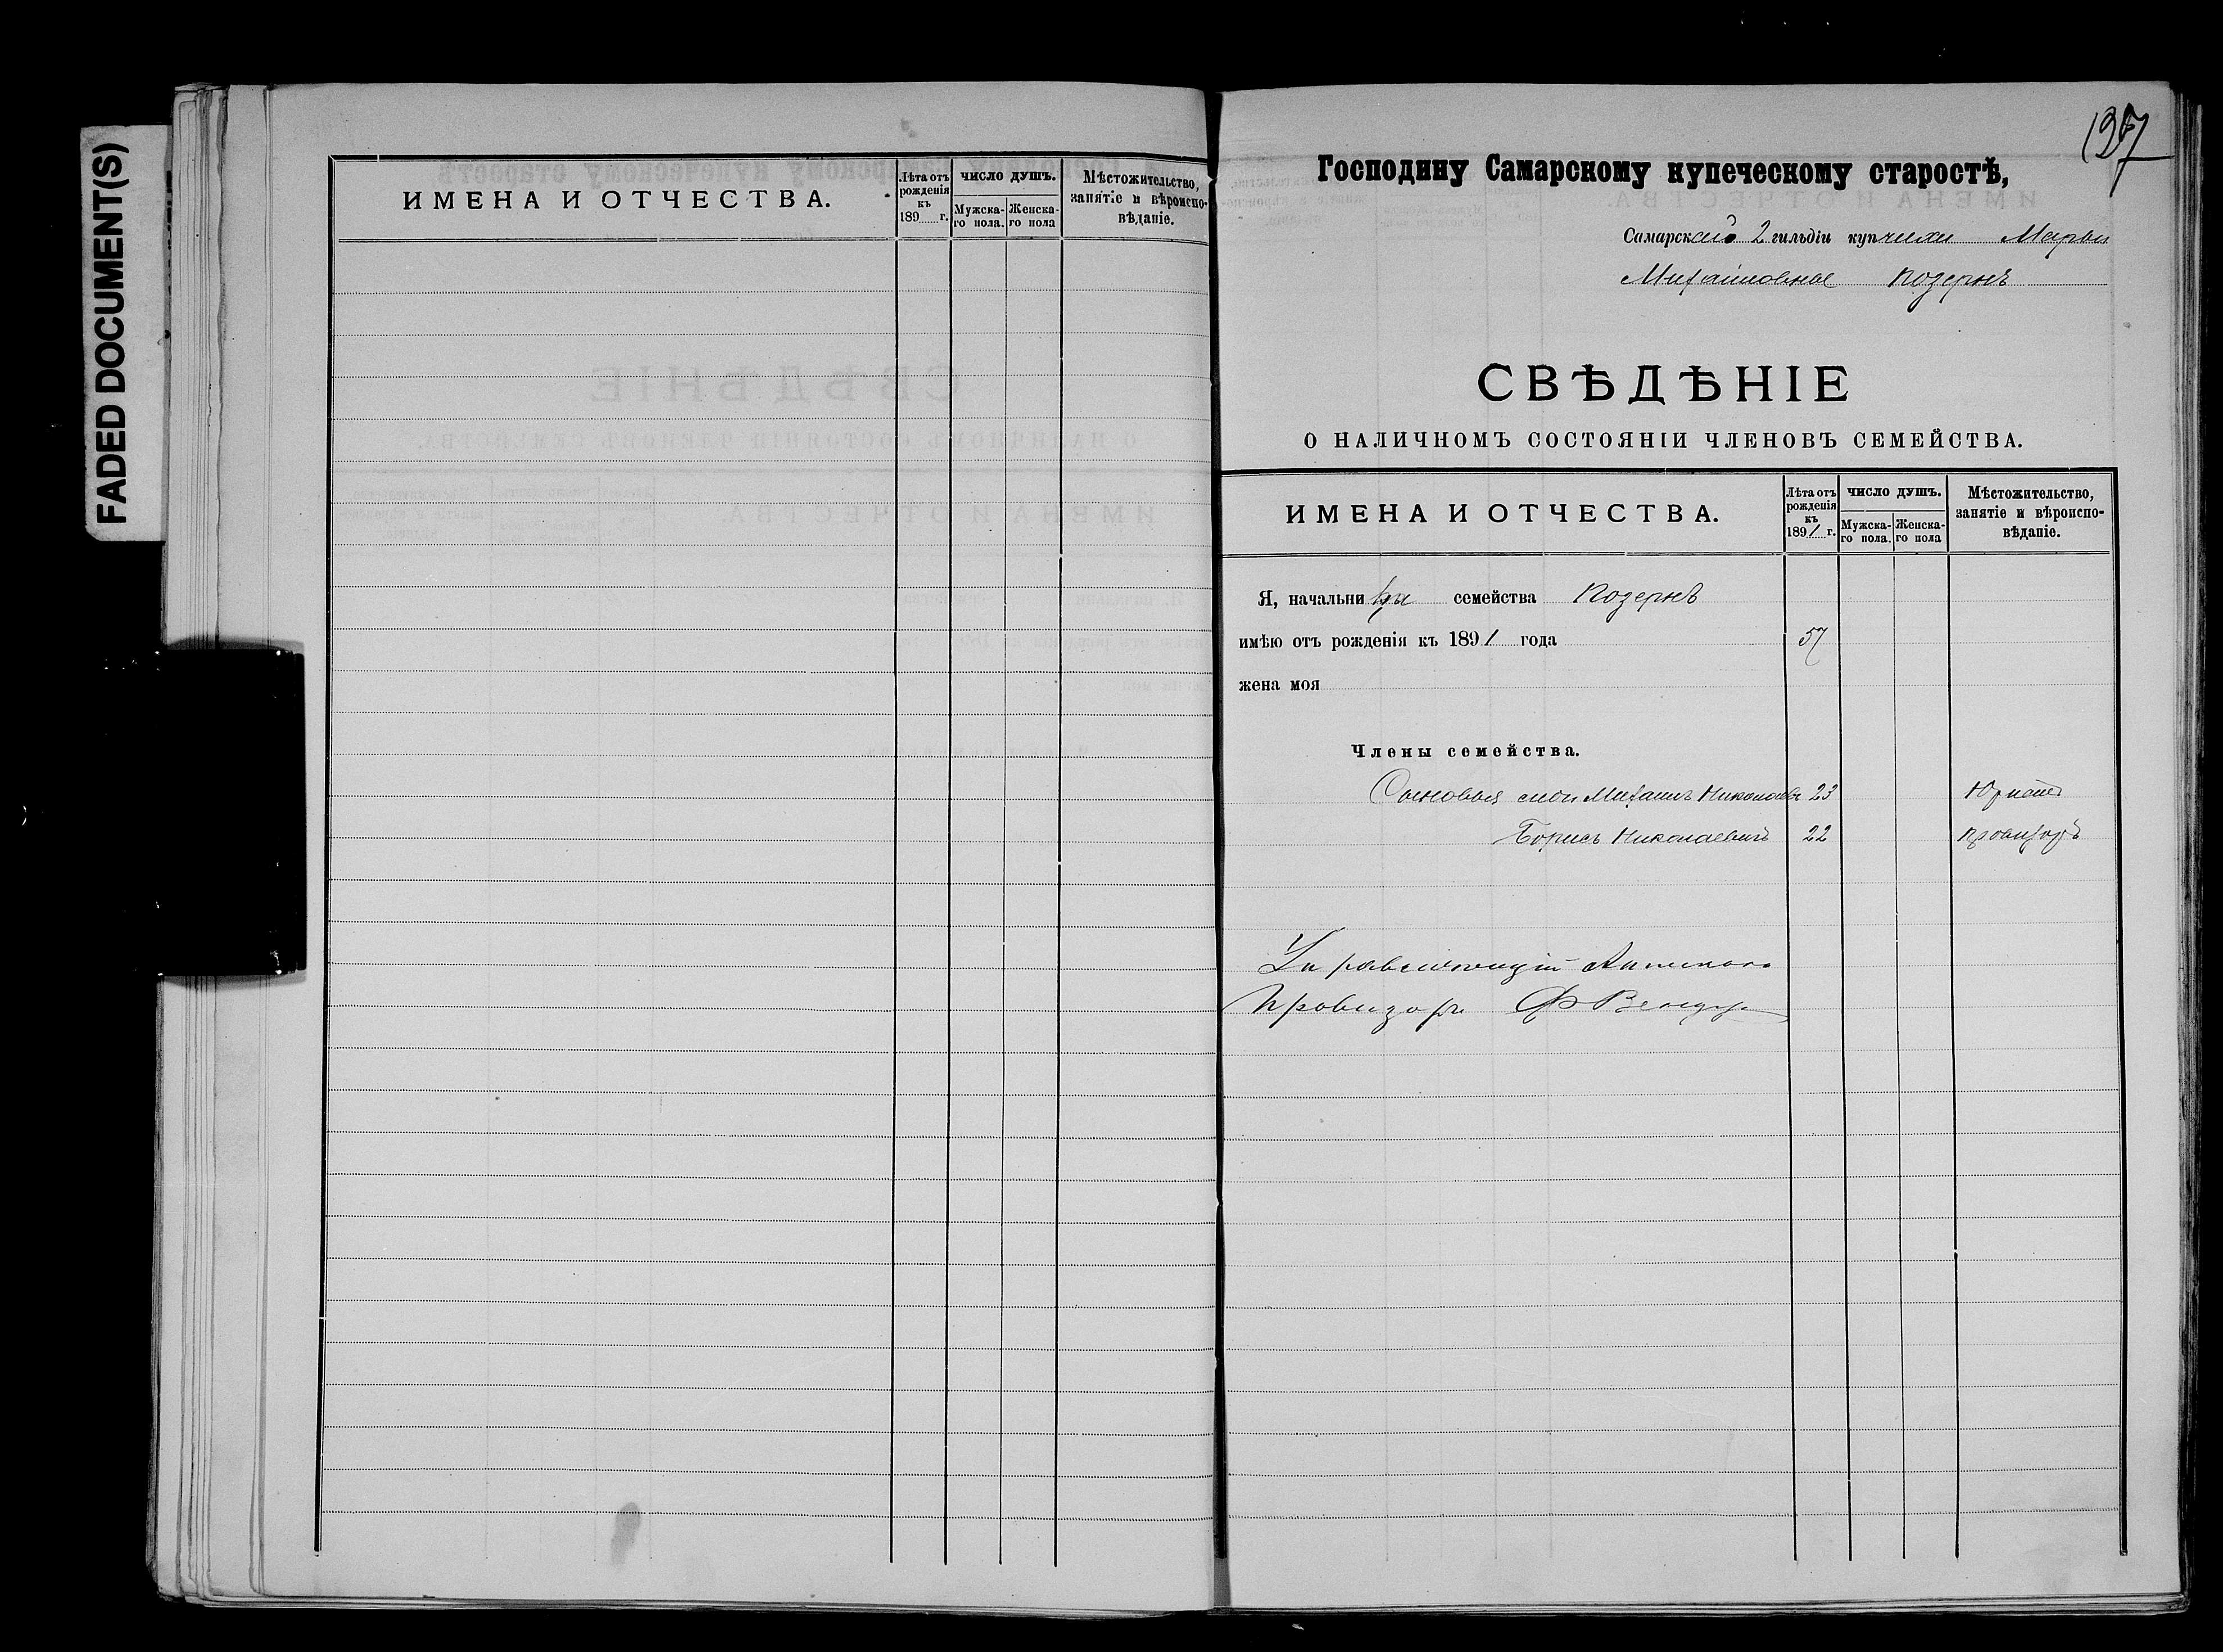 FADED DOCUMENT(S)
ИМЕНА И ОТЧЕСТВА.
Лѣта отъ рожденія къ 189 г.
ЧИСЛО ДУШЪ.
Мужска-го пола.
Женска-го пола
Мѣстожительство, занятіе и вѣроиспо-вѣданіе.
137
Господину Самарскому купеческому старостѣ,
Самарской 2 гильдіи купчихи Марьи
Михайловны Позернъ
СВѢДѢНІЕ
О НАЛИЧНОМЪ СОСТОЯНІИ ЧЛЕНОВЪ СЕМЕЙСТВА.
ИМЕНА И ОТЧЕСТВА.
Лѣта отъ рожденія къ 1891 г.
ЧИСЛО ДУШЪ.
Мужска-го пола.
Женска-го пола
Мѣстожительство, занятіе и вѣроиспо-вѣданіе.
Я, начальница семейства Позернъ
имѣю отъ рожденія къ 1891 года 57
жена моя
Члены семейства.
Сыновья мои Михаилъ Николаевъ 23 Юристъ
Борисъ Николаевичъ 22 провизоръ
Управляющій Аптекою
Провизоръ